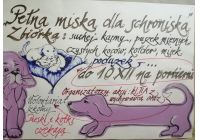 "Pełna miska dla schroniska"
Zbiórka: suchej karmy, puszek mięsnych,
czystych koców, kołder, misek
poduszek
do 10 XII na portierni
Organizatorzy akcji
wolontariat
szkolny
Pieski i kotki
czekają